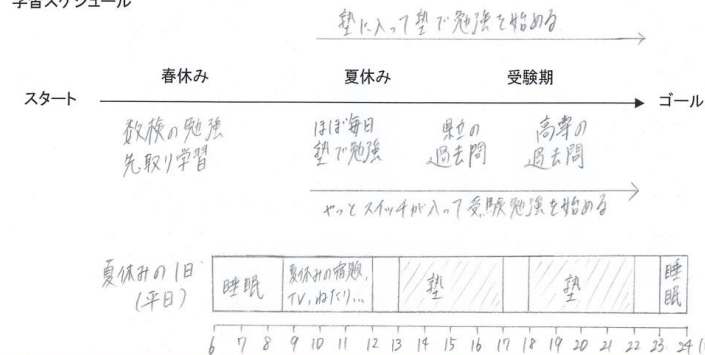 学習スケジュール
塾に入って塾で勉強を始める
春休み 夏休み 受験期
スタート ゴール
数検の勉強
先取り学習
ほぼ毎日
塾で勉強
県立の
過去問
高専の
過去問
やっとスイッチが入って受験勉強を始める
夏休みの1日
(平日)
睡眠
夏休みの宿題,
TV, ねたり...
塾
塾
睡眠
6 7 8 9 10 11 12 13 14 15 16 17 18 19 20 21 22 23 24 (